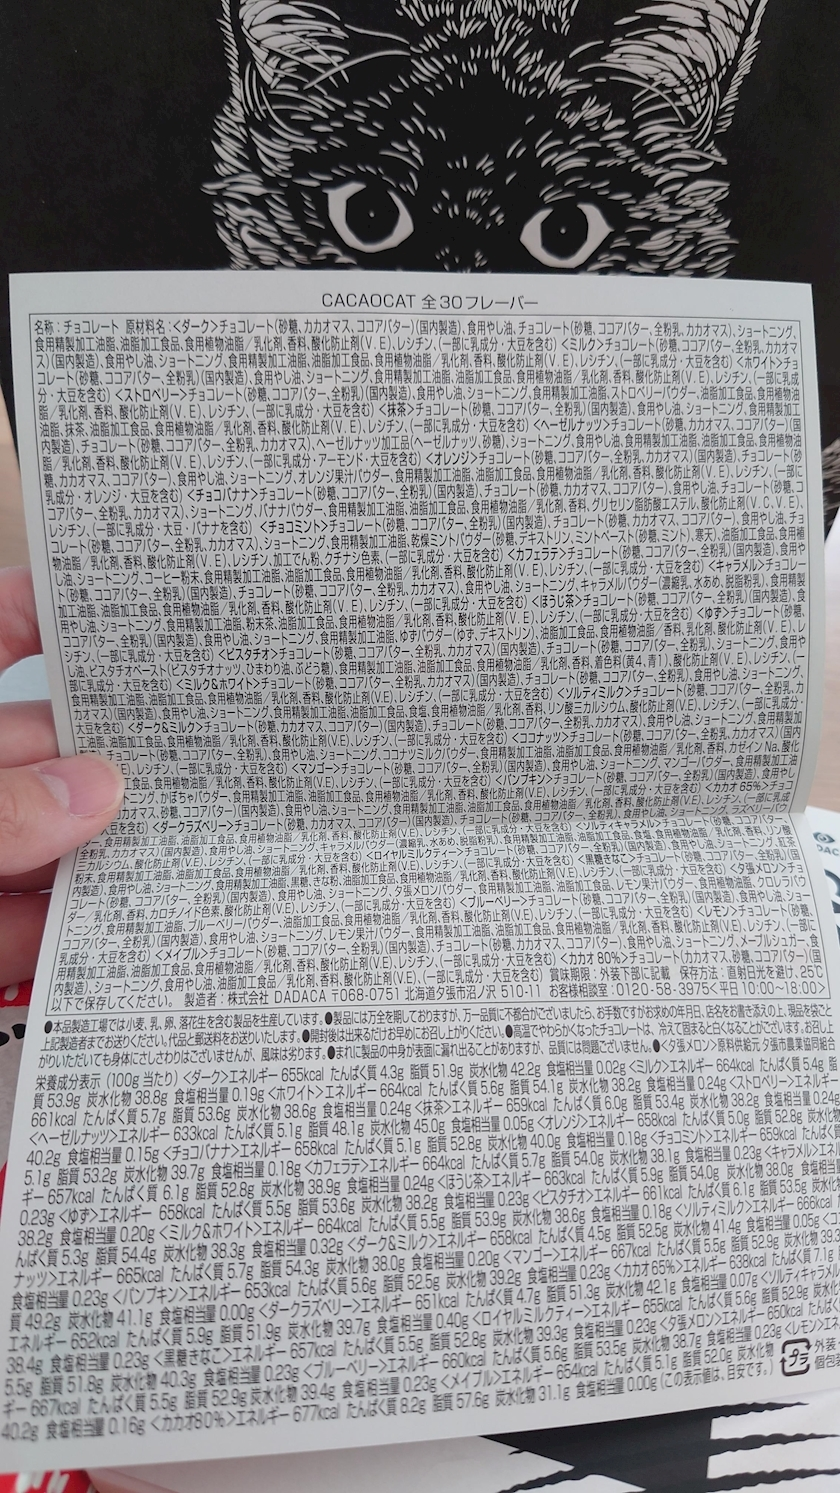 CACAOCAT 全30フレーバー
名称:チョコレート 原材料名:<ダーク>チョコレート(砂糖、カカオマス、ココアバター)(国内製造)、食用やし油、チョコレート(砂糖、ココアバター、全粉乳、カカオマス)、ショートニング、
食用精製加工油脂、油脂加工食品、食用植物油脂/乳化剤、香料、酸化防止剤(V.E)、レシチン、(一部に乳成分・大豆を含む) <ミルク>チョコレート(砂糖、ココアバター、全粉乳、カカオマ
ス)(国内製造)、食用やし油、ショートニング、食用精製加工油脂、油脂加工食品、食用植物油脂/乳化剤、香料、酸化防止剤(V.E)、レシチン、(一部に乳成分・大豆を含む) <ホワイト>チョ
コレート(砂糖、ココアバター、全粉乳)(国内製造)、食用やし油、ショートニング、食用精製加工油脂、油脂加工食品、食用植物油脂/乳化剤、香料、酸化防止剤(V.E)、レシチン、(一部に乳成
分・大豆を含む) <ストロベリー>チョコレート(砂糖、ココアバター、全粉乳)(国内製造)、食用やし油、ショートニング、食用精製加工油脂、ストロベリーパウダー、油脂加工食品、食用植物油
脂/乳化剤、香料、酸化防止剤(V.E)、レシチン、(一部に乳成分・大豆を含む) <抹茶>チョコレート(砂糖、ココアバター、全粉乳)(国内製造)、食用やし油、ショートニング、食用精製加工
油脂、抹茶、油脂加工食品、食用植物油脂/乳化剤、香料、酸化防止剤(V.E)、レシチン、(一部に乳成分・大豆を含む) <ヘーゼルナッツ>チョコレート(砂糖、カカオマス、ココアバター)(国
内製造)、チョコレート(砂糖、ココアバター、全粉乳、カカオマス)、ヘーゼルナッツ加工品(ヘーゼルナッツ、砂糖)、ショートニング、食用やし油、食用精製加工油脂、油脂加工食品、食用植物油
脂/乳化剤、香料、酸化防止剤(V.E)、レシチン、(一部に乳成分・アーモンド・大豆を含む) <オレンジ>チョコレート(砂糖、ココアバター、全粉乳、カカオマス)(国内製造)、チョコレート(砂
糖、カカオマス、ココアバター)、食用やし油、ショートニング、オレンジ果汁パウダー、食用精製加工油脂、油脂加工食品、食用植物油脂/乳化剤、香料、酸化防止剤(V.E)、レシチン、(一部に
乳成分・オレンジ・大豆を含む) <チョコバナナ>チョコレート(砂糖、ココアバター、全粉乳)(国内製造)、チョコレート(砂糖、カカオマス、ココアバター)、食用やし油、チョコレート(砂糖、コ
コアバター、全粉乳、カカオマス)、ショートニング、バナナパウダー、食用精製加工油脂、油脂加工食品、食用植物油脂/乳化剤、香料、グリセリン脂肪酸エステル、酸化防止剤(V.C、V.E)、
レシチン、(一部に乳成分・大豆・バナナを含む) <チョコミント>チョコレート(砂糖、ココアバター、全粉乳)(国内製造)、チョコレート(砂糖、カカオマス、ココアバター)、食用やし油、チョ
コレート(砂糖、ココアバター、全粉乳、カカオマス)、ショートニング、食用精製加工油脂、乾燥ミントパウダー(砂糖、デキストリン、ミントペースト(砂糖、ミント)、寒天)、油脂加工食品、食用植
物油脂/乳化剤、香料、酸化防止剤(V.E)、レシチン、加工でん粉、クチナシ色素、(一部に乳成分・大豆を含む) <カフェラテ>チョコレート(砂糖、ココアバター、全粉乳)(国内製造)、食用や
し油、ショートニング、コーヒー粉末、食用精製加工油脂、油脂加工食品、食用植物油脂/乳化剤、香料、酸化防止剤(V.E)、レシチン、(一部に乳成分・大豆を含む) <キャラメル>チョコレー
ト(砂糖、ココアバター、全粉乳)(国内製造)、チョコレート(砂糖、ココアバター、全粉乳、カカオマス)、食用やし油、ショートニング、キャラメルパウダー(濃縮乳、水あめ、脱脂粉乳)、食用精製
加工油脂、油脂加工食品、食用植物油脂/乳化剤、香料、酸化防止剤(V.E)、レシチン、(一部に乳成分・大豆を含む) <ほうじ茶>チョコレート(砂糖、ココアバター、全粉乳)(国内製造)、食
用やし油、ショートニング、食用精製加工油脂、粉末茶、油脂加工食品、食用植物油脂/乳化剤、香料、酸化防止剤(V.E)、レシチン、(一部に乳成分・大豆を含む) <ゆず>チョコレート(砂糖、
ココアバター、全粉乳)(国内製造)、食用やし油、ショートニング、食用精製加工油脂、ゆずパウダー(ゆず、デキストリン)、油脂加工食品、食用植物油脂/香料、乳化剤、酸化防止剤(V.E)、レ
シチン、(一部に乳成分・大豆を含む) <ピスタチオ>チョコレート(砂糖、ココアバター、全粉乳、カカオマス)(国内製造)、チョコレート(砂糖、ココアバター、全粉乳)、ショートニング、食用や
し油、ピスタチオペースト(ピスタチオナッツ、ひまわり油、ぶどう糖)、食用精製加工油脂、油脂加工食品、食用植物油脂/乳化剤、香料、着色料(黄4、青1)、酸化防止剤(V.E)、レシチン、(一
部に乳成分・大豆を含む) <ミルク&ホワイト>チョコレート(砂糖、ココアバター、全粉乳、カカオマス)(国内製造)、チョコレート(砂糖、ココアバター、全粉乳)、食用やし油、ショートニング、
食用精製加工油脂、油脂加工食品、食用植物油脂/乳化剤、香料、酸化防止剤(V.E)、レシチン、(一部に乳成分・大豆を含む) <ソルティミルク>チョコレート(砂糖、ココアバター、全粉乳、カ
カオマス)(国内製造)、食用やし油、ショートニング、食用精製加工油脂、油脂加工食品、食塩、食用植物油脂/乳化剤、香料、リン酸三カルシウム、酸化防止剤(V.E)、レシチン、(一部に乳成分・
大豆を含む) <ダーク&ミルク>チョコレート(砂糖、カカオマス、ココアバター)(国内製造)、チョコレート(砂糖、ココアバター、全粉乳、カカオマス)、食用やし油、ショートニング、食用精製加
工油脂、油脂加工食品、食用植物油脂/乳化剤、香料、酸化防止剤(V.E)、レシチン、(一部に乳成分・大豆を含む) <ココナッツ>チョコレート(砂糖、ココアバター、全粉乳、カカオマス)(国内
製造)、チョコレート(砂糖、ココアバター、全粉乳)、食用やし油、ショートニング、ココナツミルクパウダー、食用精製加工油脂、油脂加工食品、食用植物油脂/乳化剤、香料、カゼインNa、酸化
E)、レシチン、(一部に乳成分・大豆を含む) <マンゴー>チョコレート(砂糖、ココアバター、全粉乳)(国内製造)、食用やし油、ショートニング、マンゴーパウダー、食用精製加工油
工食品、食用植物油脂/乳化剤、香料、酸化防止剤(V.E)、レシチン、(一部に乳成分・大豆を含む) <パンプキン>チョコレート(砂糖、ココアバター、全粉乳)(国内製造)、食用やし
ニング、かぼちゃパウダー、食用精製加工油脂、油脂加工食品、食用植物油脂/乳化剤、香料、酸化防止剤(V.E)、レシチン、(一部に乳成分・大豆を含む) <カカオ65%>チョコ
カオマス、砂糖、ココアバター)(国内製造)、食用やし油、ショートニング、食用精製加工油脂、油脂加工食品、食用植物油脂/乳化剤、香料、酸化防止剤(V.E)、レシチン、(一部に乳成
大豆を含む) <ダークラズベリー>チョコレート(砂糖、カカオマス、ココアバター)(国内製造)、チョコレート(砂糖、ココアバター、全粉乳、カカオマス)、食用やし油、ショートニング、ラズベリーパウ
ダー、食用精製加工油脂、油脂加工食品、食用植物油脂/乳化剤、香料、酸化防止剤(V.E)、レシチン、(一部に乳成分・大豆を含む) <ソルティキャラメル>チョコレート(砂糖、ココアバター、
全粉乳、カカオマス)(国内製造)、食用やし油、ショートニング、キャラメルパウダー(濃縮乳、水あめ、脱脂粉乳)、食用精製加工油脂、油脂加工食品、食塩、食用植物油脂/乳化剤、香料、リン酸
三カルシウム、酸化防止剤(V.E)、レシチン、(一部に乳成分・大豆を含む) <ロイヤルミルクティー>チョコレート(砂糖、ココアバター、全粉乳)(国内製造)、食用やし油、ショートニング、紅茶
粉末、食用精製加工油脂、油脂加工食品、食用植物油脂/乳化剤、香料、酸化防止剤(V.E)、レシチン、(一部に乳成分・大豆を含む) <黒糖きなこ>チョコレート(砂糖、ココアバター、全粉乳)(国
内製造)、食用やし油、ショートニング、食用精製加工油脂、黒糖、きな粉、油脂加工食品、食用植物油脂/乳化剤、香料、酸化防止剤(V.E)、レシチン、(一部に乳成分・大豆を含む) <夕張メロン>チョ
コレート(砂糖、ココアバター、全粉乳)(国内製造)、食用やし油、ショートニング、夕張メロンパウダー、食用精製加工油脂、油脂加工食品、レモン果汁パウダー、食用植物油脂、クロレラパウ
ダー/乳化剤、香料、カロチノイド色素、酸化防止剤(V.E)、レシチン、(一部に乳成分・大豆を含む) <ブルーベリー>チョコレート(砂糖、ココアバター、全粉乳)(国内製造)、食用やし油、ショー
トニング、食用精製加工油脂、ブルーベリーパウダー、油脂加工食品、食用植物油脂/乳化剤、香料、酸化防止剤(V.E)、レシチン、(一部に乳成分・大豆を含む) <レモン>チョコレート(砂糖、
ココアバター、全粉乳)(国内製造)、食用やし油、ショートニング、レモン果汁パウダー、食用精製加工油脂、油脂加工食品、食用植物油脂/乳化剤、香料、酸化防止剤(V.E)、レシチン、(一部に
乳成分・大豆を含む) <メイプル>チョコレート(砂糖、ココアバター、全粉乳)(国内製造)、チョコレート(砂糖、カカオマス、ココアバター)、食用やし油、ショートニング、メープルシュガー、食
用精製加工油脂、油脂加工食品、食用植物油脂/乳化剤、香料、酸化防止剤(V.E)、レシチン、(一部に乳成分・大豆を含む) <カカオ80%>チョコレート(カカオマス、砂糖、ココアバター)(国
内製造)、食用やし油、ショートニング、食用精製加工油脂、油脂加工食品、食用植物油脂/乳化剤、香料、酸化防止剤(V.E)、レシチン、(一部に乳成分・大豆を含む) 賞味期限:外装下部に記載 保存方法:直射日光を避け、25℃
以下で保存してください。 製造者:株式会社 DADACA 〒068-0751 北海道夕張市沼ノ沢 510-11 お客様相談室:0120-58-3975<平日10:00〜18:00>
●本品製造工場では小麦、乳、卵、落花生を含む製品を生産しています。●製品には万全を期しておりますが、万一品質に不都合がございましたら、お手数ですがお求めの年月日、店名をお書き添えの上、現品を袋ごと
上記製造者までお送りください。代品と郵送料をお送りいたします。●開封後は出来るだけお早めにお召し上がりください。●高温でやわらかくなったチョコレートは、冷えて固まると白くなることがございます。お召し上
がりいただいても身体にさしさわりはございませんが、風味は劣ります。●まれに製品の中身が表面に漏れ出ることがありますが、品質には問題ございません。●<夕張メロン>原料供給元:夕張市農業協同組合
栄養成分表示 (100g当たり) <ダーク>エネルギー 655kcal たんぱく質 4.3g 脂質 51.9g 炭水化物 42.2g 食塩相当量 0.02g <ミルク>エネルギー 664kcal たんぱく質 5.4g 脂
質 53.9g 炭水化物 38.8g 食塩相当量 0.19g <ホワイト>エネルギー 664kcal たんぱく質 5.6g 脂質 54.1g 炭水化物 38.2g 食塩相当量 0.24g <ストロベリー>エネルギー
661kcal たんぱく質 5.7g 脂質 53.6g 炭水化物 38.6g 食塩相当量 0.24g <抹茶>エネルギー 659kcal たんぱく質 6.0g 脂質 53.4g 炭水化物 38.2g 食塩相当量 0.24g
<ヘーゼルナッツ>エネルギー 633kcal たんぱく質 5.1g 脂質 48.1g 炭水化物 45.0g 食塩相当量 0.05g <オレンジ>エネルギー 658kcal たんぱく質 5.0g 脂質 52.8g 炭水化物
40.2g 食塩相当量 0.15g <チョコバナナ>エネルギー 658kcal たんぱく質 5.1g 脂質 52.8g 炭水化物 40.0g 食塩相当量 0.18g <チョコミント>エネルギー 659kcal たんぱく質
5.1g 脂質 53.2g 炭水化物 39.7g 食塩相当量 0.18g <カフェラテ>エネルギー 664kcal たんぱく質 5.7g 脂質 54.0g 炭水化物 38.1g 食塩相当量 0.23g <キャラメル>エネル
ギー 657kcal たんぱく質 6.1g 脂質 52.8g 炭水化物 38.9g 食塩相当量 0.24g <ほうじ茶>エネルギー 663kcal たんぱく質 5.9g 脂質 54.0g 炭水化物 38.0g 食塩相当量
0.23g <ゆず>エネルギー 658kcal たんぱく質 5.5g 脂質 53.6g 炭水化物 38.2g 食塩相当量 0.23g <ピスタチオ>エネルギー 661kcal たんぱく質 6.1g 脂質 53.5g 炭水化物
38.2g 食塩相当量 0.20g <ミルク&ホワイト>エネルギー 664kcal たんぱく質 5.5g 脂質 53.9g 炭水化物 38.6g 食塩相当量 0.18g <ソルティミルク>エネルギー 666kcal
んぱく質 5.3g 脂質 54.4g 炭水化物 38.3g 食塩相当量 0.32g <ダーク&ミルク>エネルギー 658kcal たんぱく質 4.5g 脂質 52.5g 炭水化物 41.4g 食塩相当量 0.05g
ナッツ>エネルギー 665kcal たんぱく質 5.7g 脂質 54.3g 炭水化物 38.0g 食塩相当量 0.20g <マンゴー>エネルギー 667kcal たんぱく質 5.5g 脂質 52.9g 炭水化物 39.3
食塩相当量 0.23g <パンプキン>エネルギー 653kcal たんぱく質 5.6g 脂質 52.5g 炭水化物 39.2g 食塩相当量 0.23g <カカオ65%>エネルギー 638kcal たんぱく質 7.1g
質 49.2g 炭水化物 41.1g 食塩相当量 0.00g <ダークラズベリー>エネルギー 651kcal たんぱく質 4.7g 脂質 51.3g 炭水化物 42.1g 食塩相当量 0.07g <ソルティキャラメル
エネルギー 652kcal たんぱく質 5.9g 脂質 51.9g 炭水化物 39.7g 食塩相当量 0.40g <ロイヤルミルクティー>エネルギー 655kcal たんぱく質 5.6g 脂質 52.9g 炭水化物
38.4g 食塩相当量 0.23g <黒糖きなこ>エネルギー 657kcal たんぱく質 5.5g 脂質 52.8g 炭水化物 39.3g 食塩相当量 0.23g <夕張メロン>エネルギー 650kcal たんぱく
5.5g 脂質 51.8g 炭水化物 40.3g 食塩相当量 0.23g <ブルーベリー>エネルギー 660kcal たんぱく質 5.6g 脂質 53.5g 炭水化物 38.7g 食塩相当量 0.23g <レモン>エネ
ギー 667kcal たんぱく質 5.5g 脂質 52.9g 炭水化物 39.4g 食塩相当量 0.23g <メイプル>エネルギー 654kcal たんぱく質 5.1g 脂質 52.0g 炭水化物
40.2g 食塩相当量 0.16g <カカオ80%>エネルギー 677kcal たんぱく質 8.2g 脂質 57.6g 炭水化物 31.1g 食塩相当量 0.00g (この表示値は、目安です。)
プラ
外装
個包装